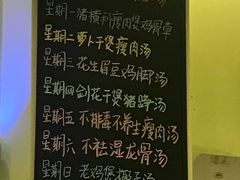 星期一猪横利瘦肉煲鸡骨草
星期二萝卜干煲瘦肉汤
星期三花生眉豆鸡脚汤
星期四剑花干煲猪踭汤
星期五不排毒不养生瘦肉汤
星期六不祛湿龙骨汤
星期日老鸡煲椰子汤